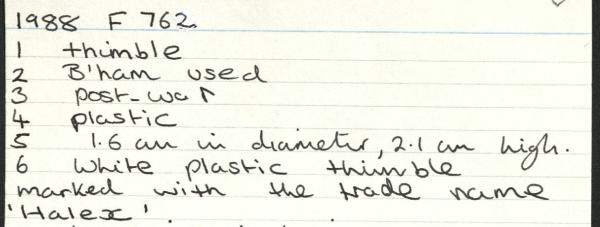 1988 F 762.
1 thimble
2 B'ham used
3 post-war
4 plastic
5 1.6 cm in diameter, 2.1 cm high.
6 White plastic thimble
marked with the trade name
'Halex'.